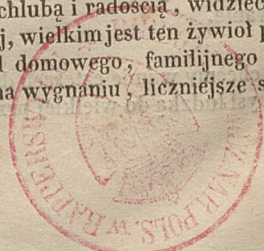 chlubą i radością, widzieć
j, wielkim jest ten żywioł p
l domowego, familijnego
na wygnaniu, liczniéjsze s
NAR. POLS. w RAPPERS